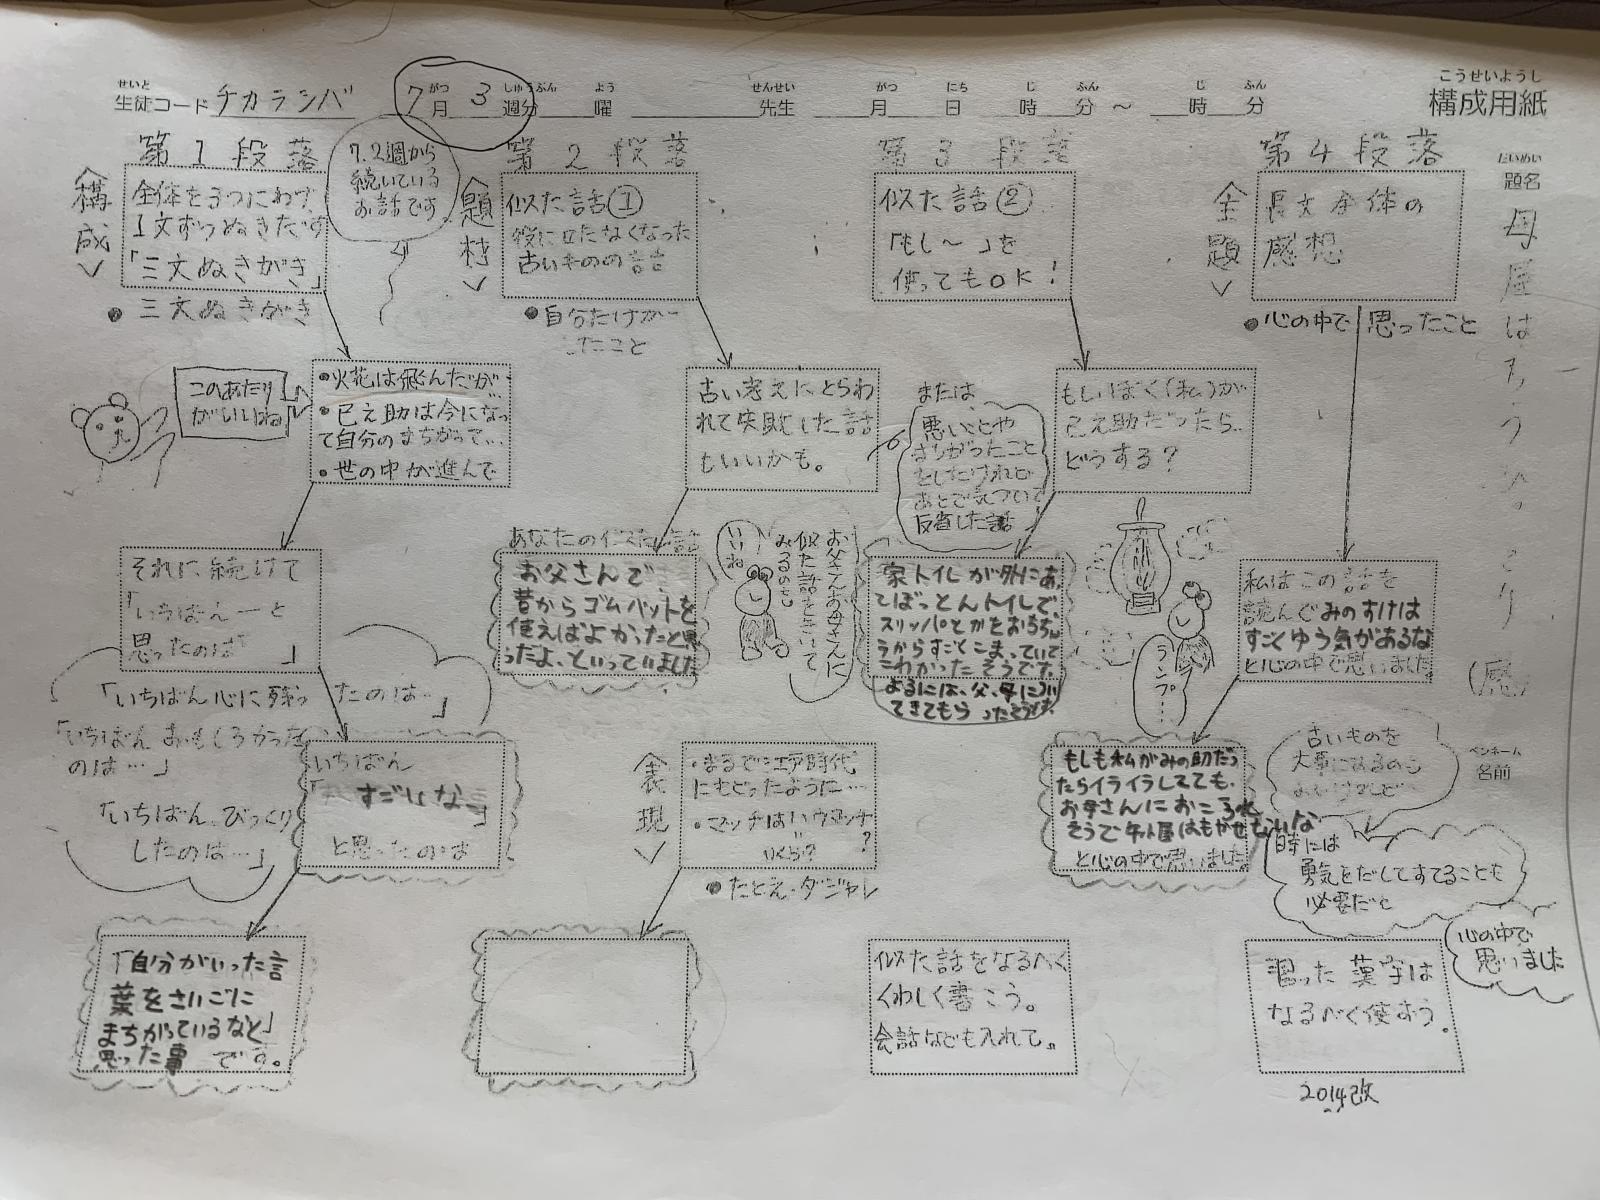 せいと
生徒コード チカラシバ
7月 3週分 曜 先生 月 日 時 分 ～ 時 分
がつ しゅうぶん よう せんせい がつ にち じ ふん じ ふん
こうせいようし
構成用紙
第1段落
＜構成＞
全体を3つにわけ
1文ずつぬきだす
「三文ぬきがき」
●三文ぬきがき
7.2週から
続いている
お話です
このあたり
がいいね
●火花は飛んだが…
●巳之助は今になっ
て自分のまちがって…
●世の中が進んで
それに続けて
「いちばん―と
思ったのは 」
「いちばん心に残ったのは…」
「いちばんおもしろかった
のは…」
「いちばんびっくり
したのは…」
いちばん
「すごいな」
と思ったのは
「自分がいった言
葉をさいごに
まちがっているなと」
思った事 です。
第2段落
＜題材＞
似た話①
役に立たなくなった
古いものの話
●自分だけが～
したこと
古い考えにとらわ
れて失敗した話
もいいかも。
あなたの似た話
お父さんで
昔からゴムバットを
使えばよかったと思
ったよ、といっていました
お父さんお母さんに
似た話をきいて
みるのも
いいね
＜表現＞
・まるで江戸時代
にもどったように…
・マッチはいつマッチ
いくら?
●たとえ・ダジャレ
第3段落
似た話②
「もし～」を
使ってもOK!
もしぼく(私)が
巳之助だったら、
どうする?
または、
悪いことや
まちがったこと
をしたけれど
あとで気づいて
反省した話
家トイレが外にあ
てぼっとんトイレで、
スリッパとかをおちぢゃ
うからすごとこまっていて
こわかったそうです。
よるには、父、母につい
てきてもらったそうです
ランプ…
似た話をなるべく
くわしく書こう。
会話なども入れて。
第4段落
＜主題＞
長文全体の
感想
●心の中で思ったこと
私はこの話を
読んでみのすけは
すごくゆう気があるな
と心の中で思いました。
もしも私がみの助だっ
たらイライラしてても、
お母さんにおころれ
そうでケト屋はもかせないな
と心の中で思いました。
古いものを
大事にするのも
よいけれど…
時には
勇気をだしてすてることも
必要だと
心の中で
思いました
習った漢字は
なるべく使おう。
2014改
だいめい
題名
母屋は
(感)
ペンネーム
名前